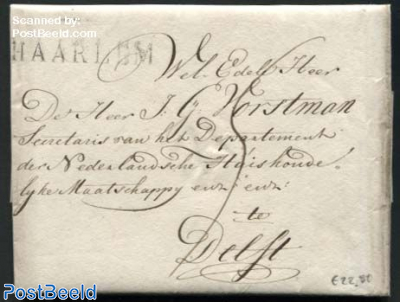 Scanned by:
PostBeeld.com
HAARLEM
Wel Edele Heer
De Heer J. G. Vorstman
Secretaris van het Departement
der Nederlandsche Huishoude-
lyke Maatschappy enz: enz:
te
Delft
PostBeeld
PostBeeld
PostBeeld